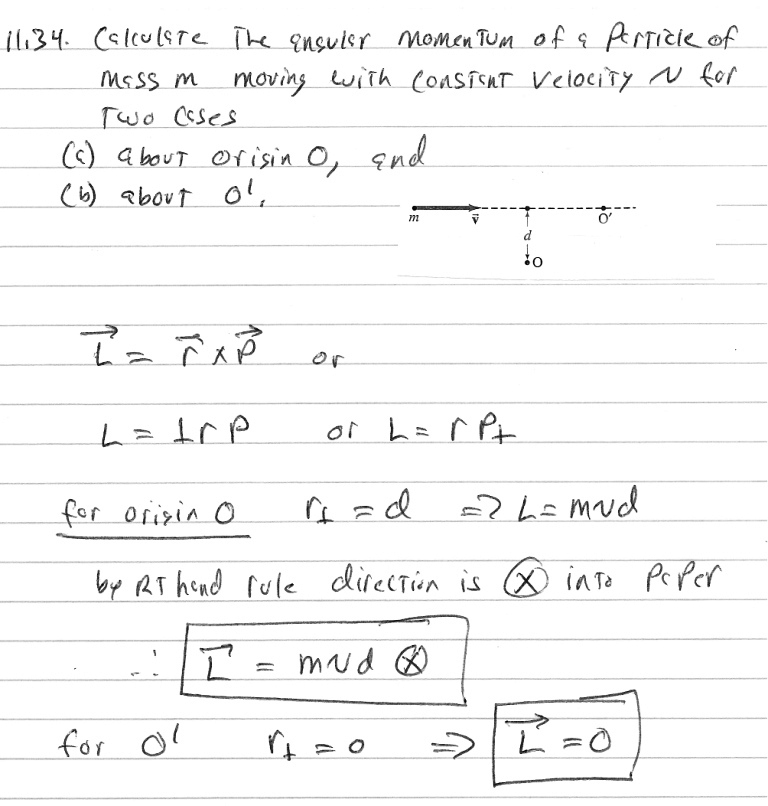 11.34. Calculate The angular momentum of a particle of
mass m moving with constant velocity v for
Two cases
(a) about origin O, and
(b) about O'.
m v⃗ O'
d
O
L⃗ = r⃗ × p⃗ or
L = ⊥r p or L = r p⊥
for origin O r⊥ = d => L = mvd
by RT hand rule direction is ⊗ into paper
∴ L⃗ = mvd ⊗
for O' r⊥ = 0 => L⃗ = 0